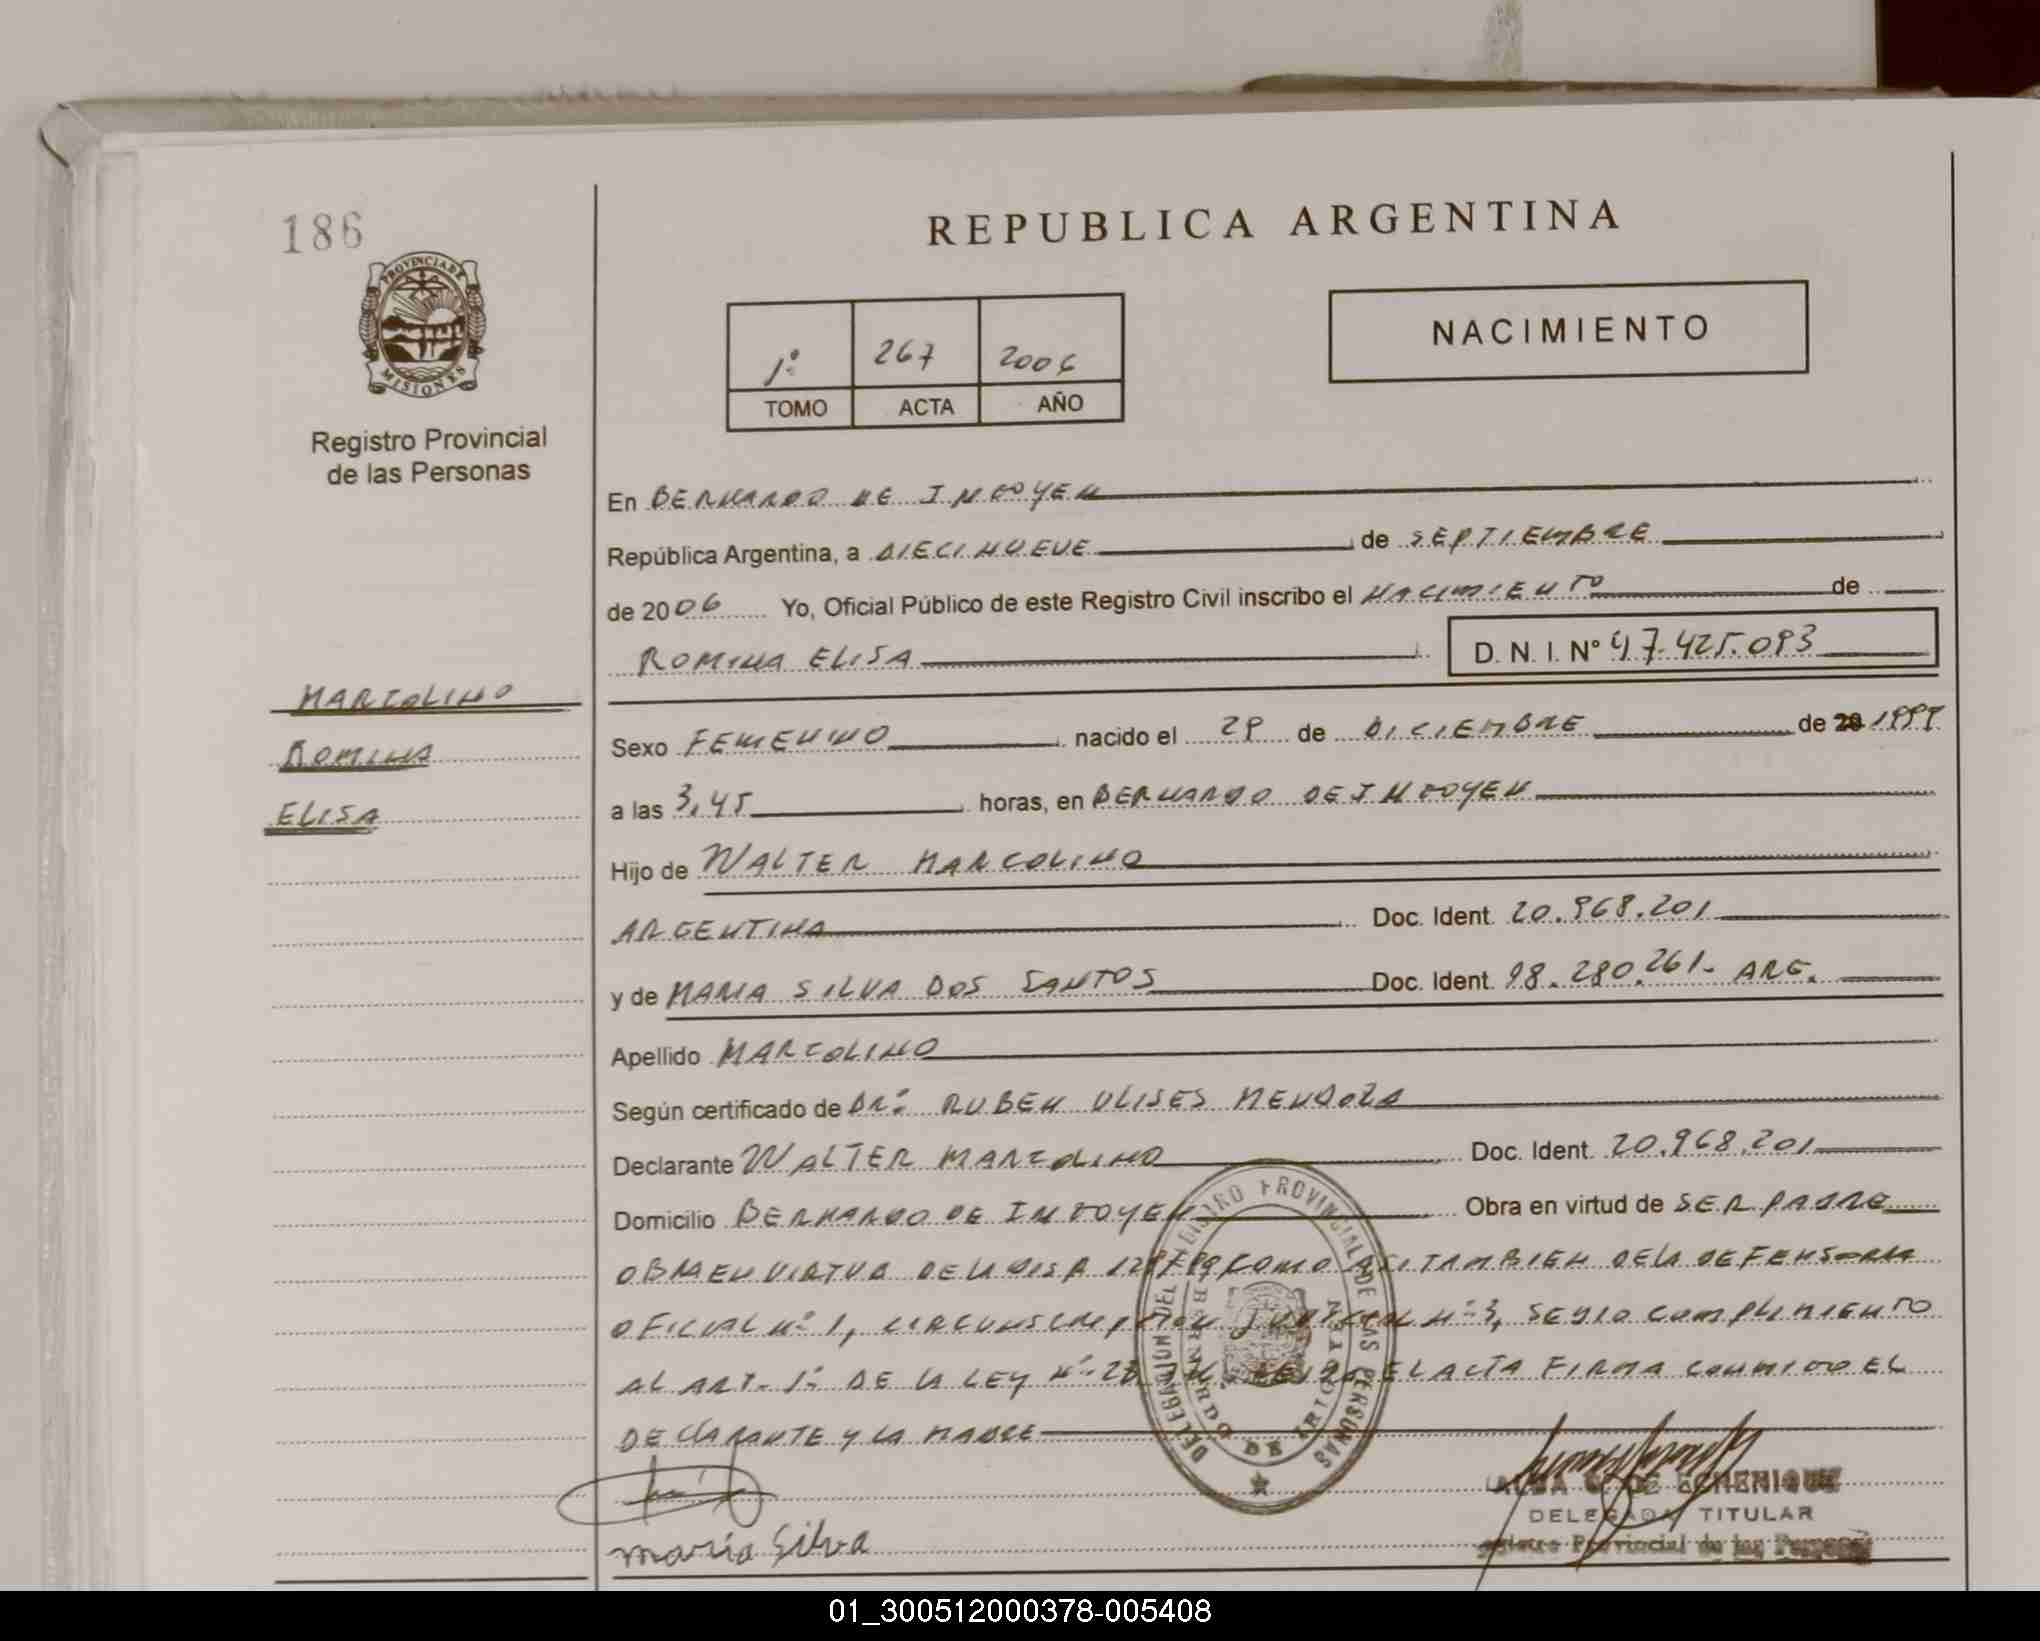 186
PROVINCIA DE
MISIONES
Registro Provincial
de las Personas
REPUBLICA ARGENTINA
1º 267 2006
TOMO ACTA AÑO
NACIMIENTO
En BERNARDO DE IRIGOYEN
República Argentina, a DIECINUEVE de SEPTIEMBRE
de 2006 Yo, Oficial Público de este Registro Civil inscribo el NACIMIENTO de
ROMINA ELISA D. N. I. Nº 47.425.093
MARCOLINO
ROMINA
ELISA
Sexo FEMENINO nacido el 29 de DICIEMBRE de 20 1999
a las 3,45 horas, en BERNARDO DE IRIGOYEN
Hijo de WALTER MARCOLINO
ARGENTINA Doc. Ident. 20.968.201
y de MARIA SILVA DOS SANTOS Doc. Ident. 98.280.261- ARG.
Apellido MARCOLINO
Según certificado de DRº RUBEN ULISES MENDOZA
Declarante WALTER MARCOLINO Doc. Ident. 20.968.201
Domicilio BERNARDO DE IRIGOYEN Obra en virtud de SER PADRE
OBRA EN VIRTUD DE LA COMO ASI TAMBIEN DE LA DEFENSORIA
OFICIAL Nº 1, CIRCUNSCRIPCION JUDICIAL Nº 3, SE DIO CUMPLIMIENTO
AL ART. 1º DE LA LEY Nº EL ACTA FIRMA CONMIGO EL
DECLARANTE Y LA MADRE
DELEGACION DEL REGISTRO PROVINCIAL DE LAS PERSONAS
BERNARDO DE IRIGOYEN
maria Silva
DE ECHENIQUE
DELEGADA TITULAR
Registro Provincial de las Personas
01_300512000378-005408